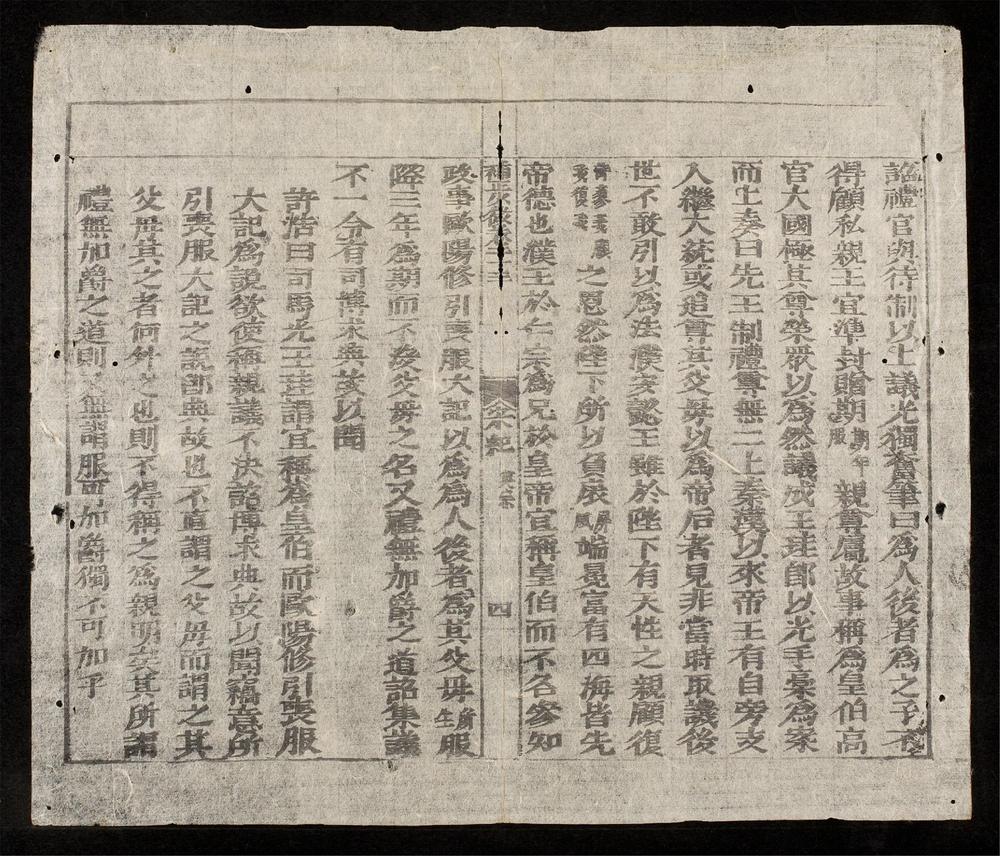 詔禮官與待制以上議光獨奮筆曰爲人後者爲之子不
得顧私親王宜準封贈期期年服親尊屬故事稱爲皇伯高
官大國極其尊榮衆以爲然議成王珪卽以光手藁爲案
而上奏曰先王制禮尊無二上秦漢以來帝王有自旁支
入繼大統或追尊其父母以爲帝后者見非當時取譏後
世不敢引以爲法濮安懿王雖於陛下有天性之親顧復
之恩然陛下所以負扆屏風端冕富有四海皆先
帝德也濮王於仁宗爲兄於皇帝宜稱皇伯而不名參知
紀
四
政事歐陽修引喪服大記以爲爲人後者爲其父母所生服
降三年爲期而不沒父母之名又禮無加爵之道詔集議
不一令有司博求典故以聞
許浩曰司馬光王珪謂宜稱爲皇伯而歐陽修引喪服
大記爲說欲使稱親議不決詔博求典故以聞竊意所
引喪服大記之說卽典故也不直謂之父母而謂之其
父母其之者何外之也則不得稱之爲親明矣其所謂
禮無加爵之道則無謂服可加爵獨不可加乎